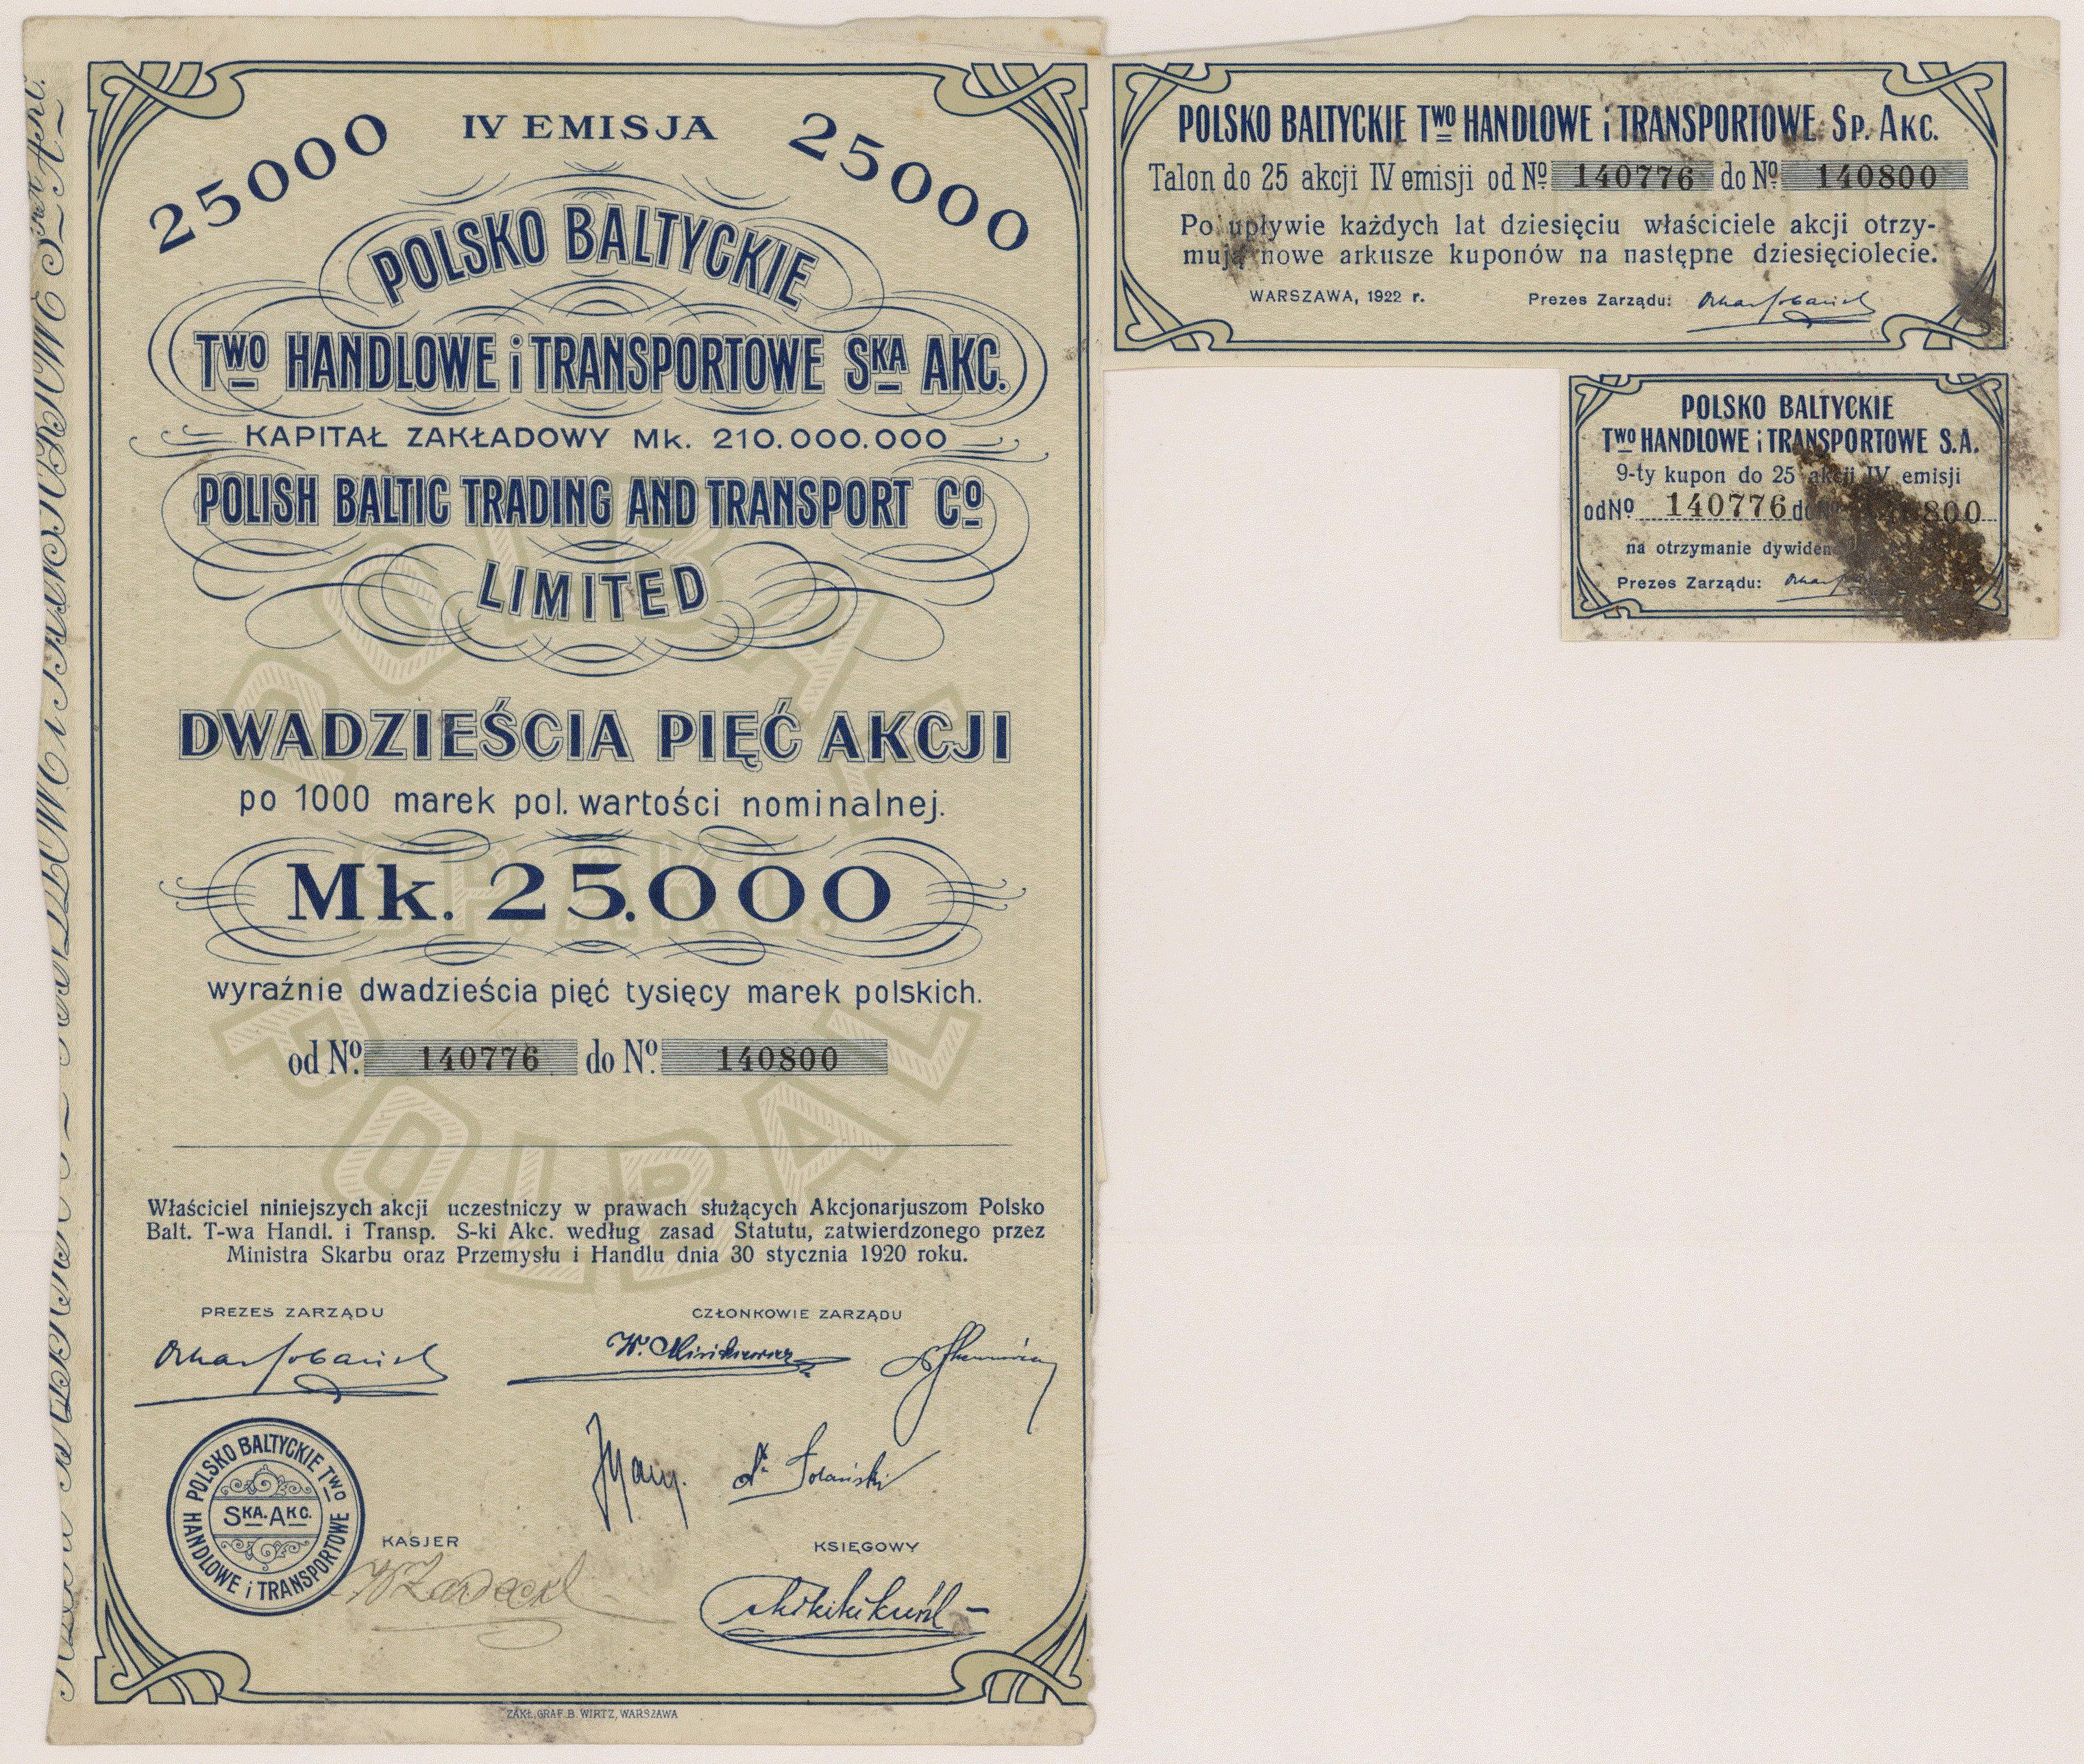 25000
IV EMISJA
25000
POLSKO BALTYCKIE
TWO HANDLOWE i TRANSPORTOWE SKA AKC.
KAPITAŁ ZAKŁADOWY Mk. 210.000.000
POLISH BALTIC TRADING AND TRANSPORT Co
LIMITED
DWADZIEŚCIA PIĘĆ AKCJI
po 1000 marek pol. wartości nominalnej.
Mk. 25.000
wyraźnie dwadzieścia pięć tysięcy marek polskich.
od No. 140776 do No. 140800
POLBAL
SP. AKC.
POLBAL
Właściciel niniejszych akcji uczestniczy w prawach służących Akcjonarjuszom Polsko
Balt. T-wa Handl. i Transp. S-ki Akc. według zasad Statutu, zatwierdzonego przez
Ministra Skarbu oraz Przemysłu i Handlu dnia 30 stycznia 1920 roku.
PREZES ZARZĄDU
CZŁONKOWIE ZARZĄDU
POLSKO BALTYCKIE TWO
SKA. AKC.
HANDLOWE i TRANSPORTOWE
KASJER
KSIĘGOWY
ZAKŁ. GRAF. B. WIRTZ, WARSZAWA
POLSKO BALTYCKIE TWO HANDLOWE i TRANSPORTOWE SP. AKC.
Talon do 25 akcji IV emisji od No. 140776 do No. 140800
Po upływie każdych lat dziesięciu właściciele akcji otrzy-
mują nowe arkusze kuponów na następne dziesięciolecie.
WARSZAWA, 1922 r.
Prezes Zarządu:
POLSKO BALTYCKIE
TWO HANDLOWE i TRANSPORTOWE S.A.
9-ty kupon do 25 akcji IV emisji
od No. 140776 do 800
na otrzymanie
Prezes Zarządu: